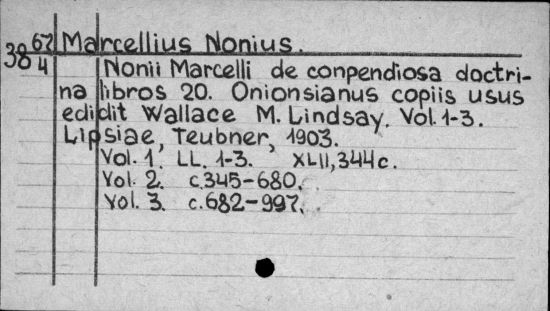 38 67/4 Marcellius Nonius.
Nonii Marcelli de conpendiosa doctri-
na libros 20. Onionsianus copiis usus
edidit Wallace M. Lindsay. Vol. 1-3.
Lipsiae, Teubner, 1903.
Vol. 1. LL. 1-3. XLII, 344 c.
Vol. 2. c. 345-680.
Vol. 3. c. 682-997.